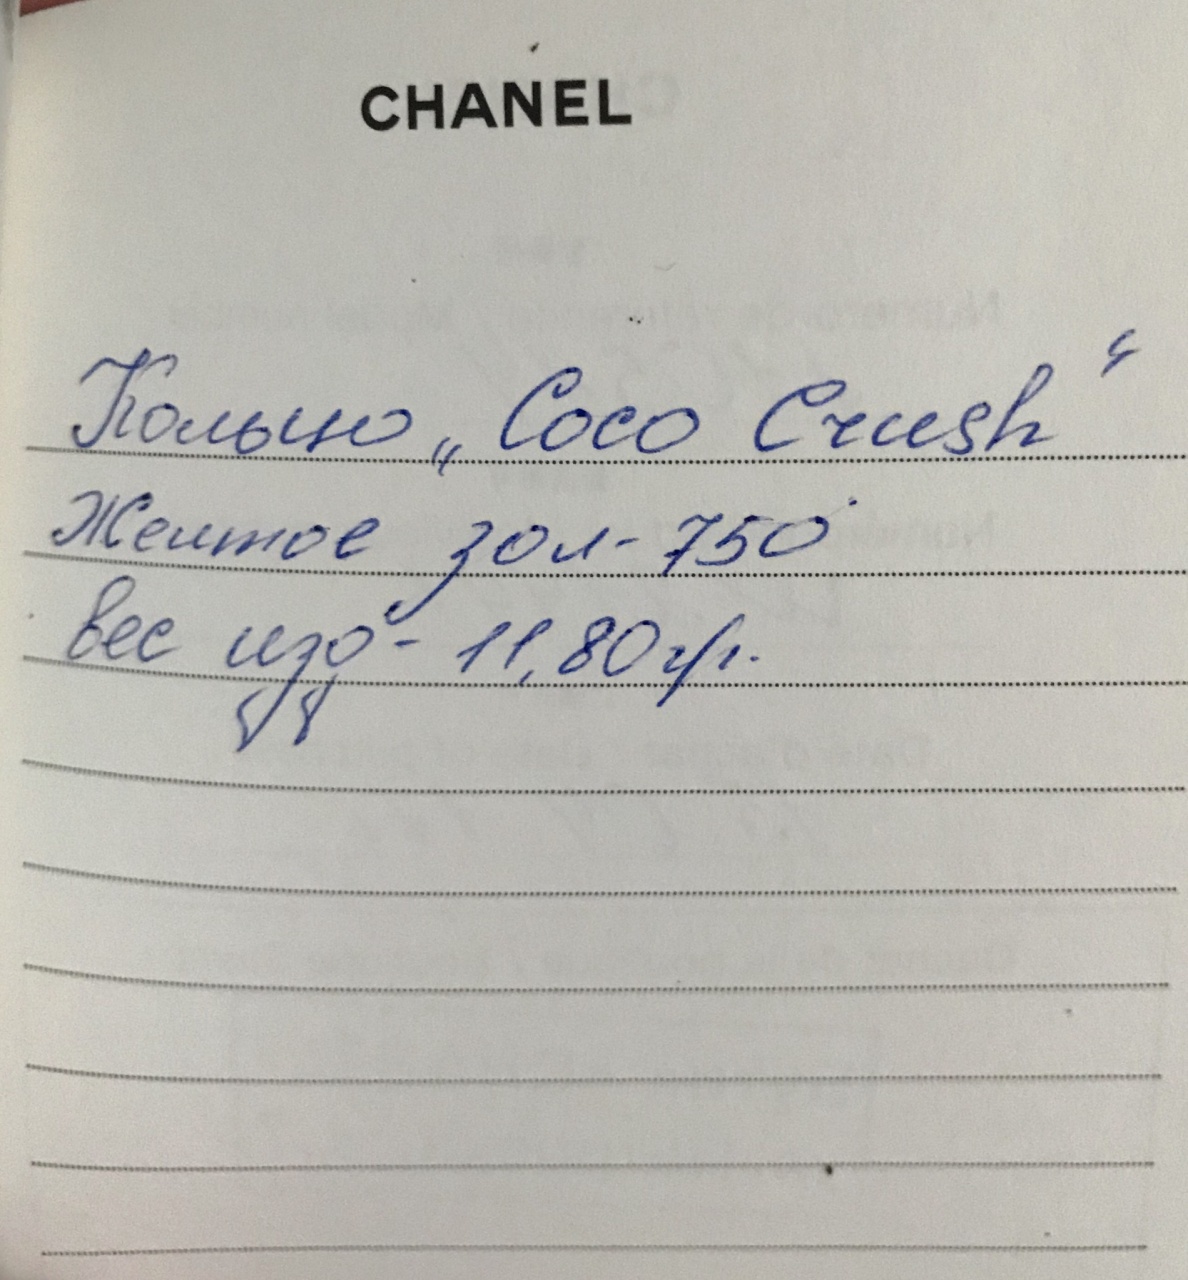 CHANEL
Кольцо „Coco Crush“
Желтое зол-750
вес изд- 11,80 гр.